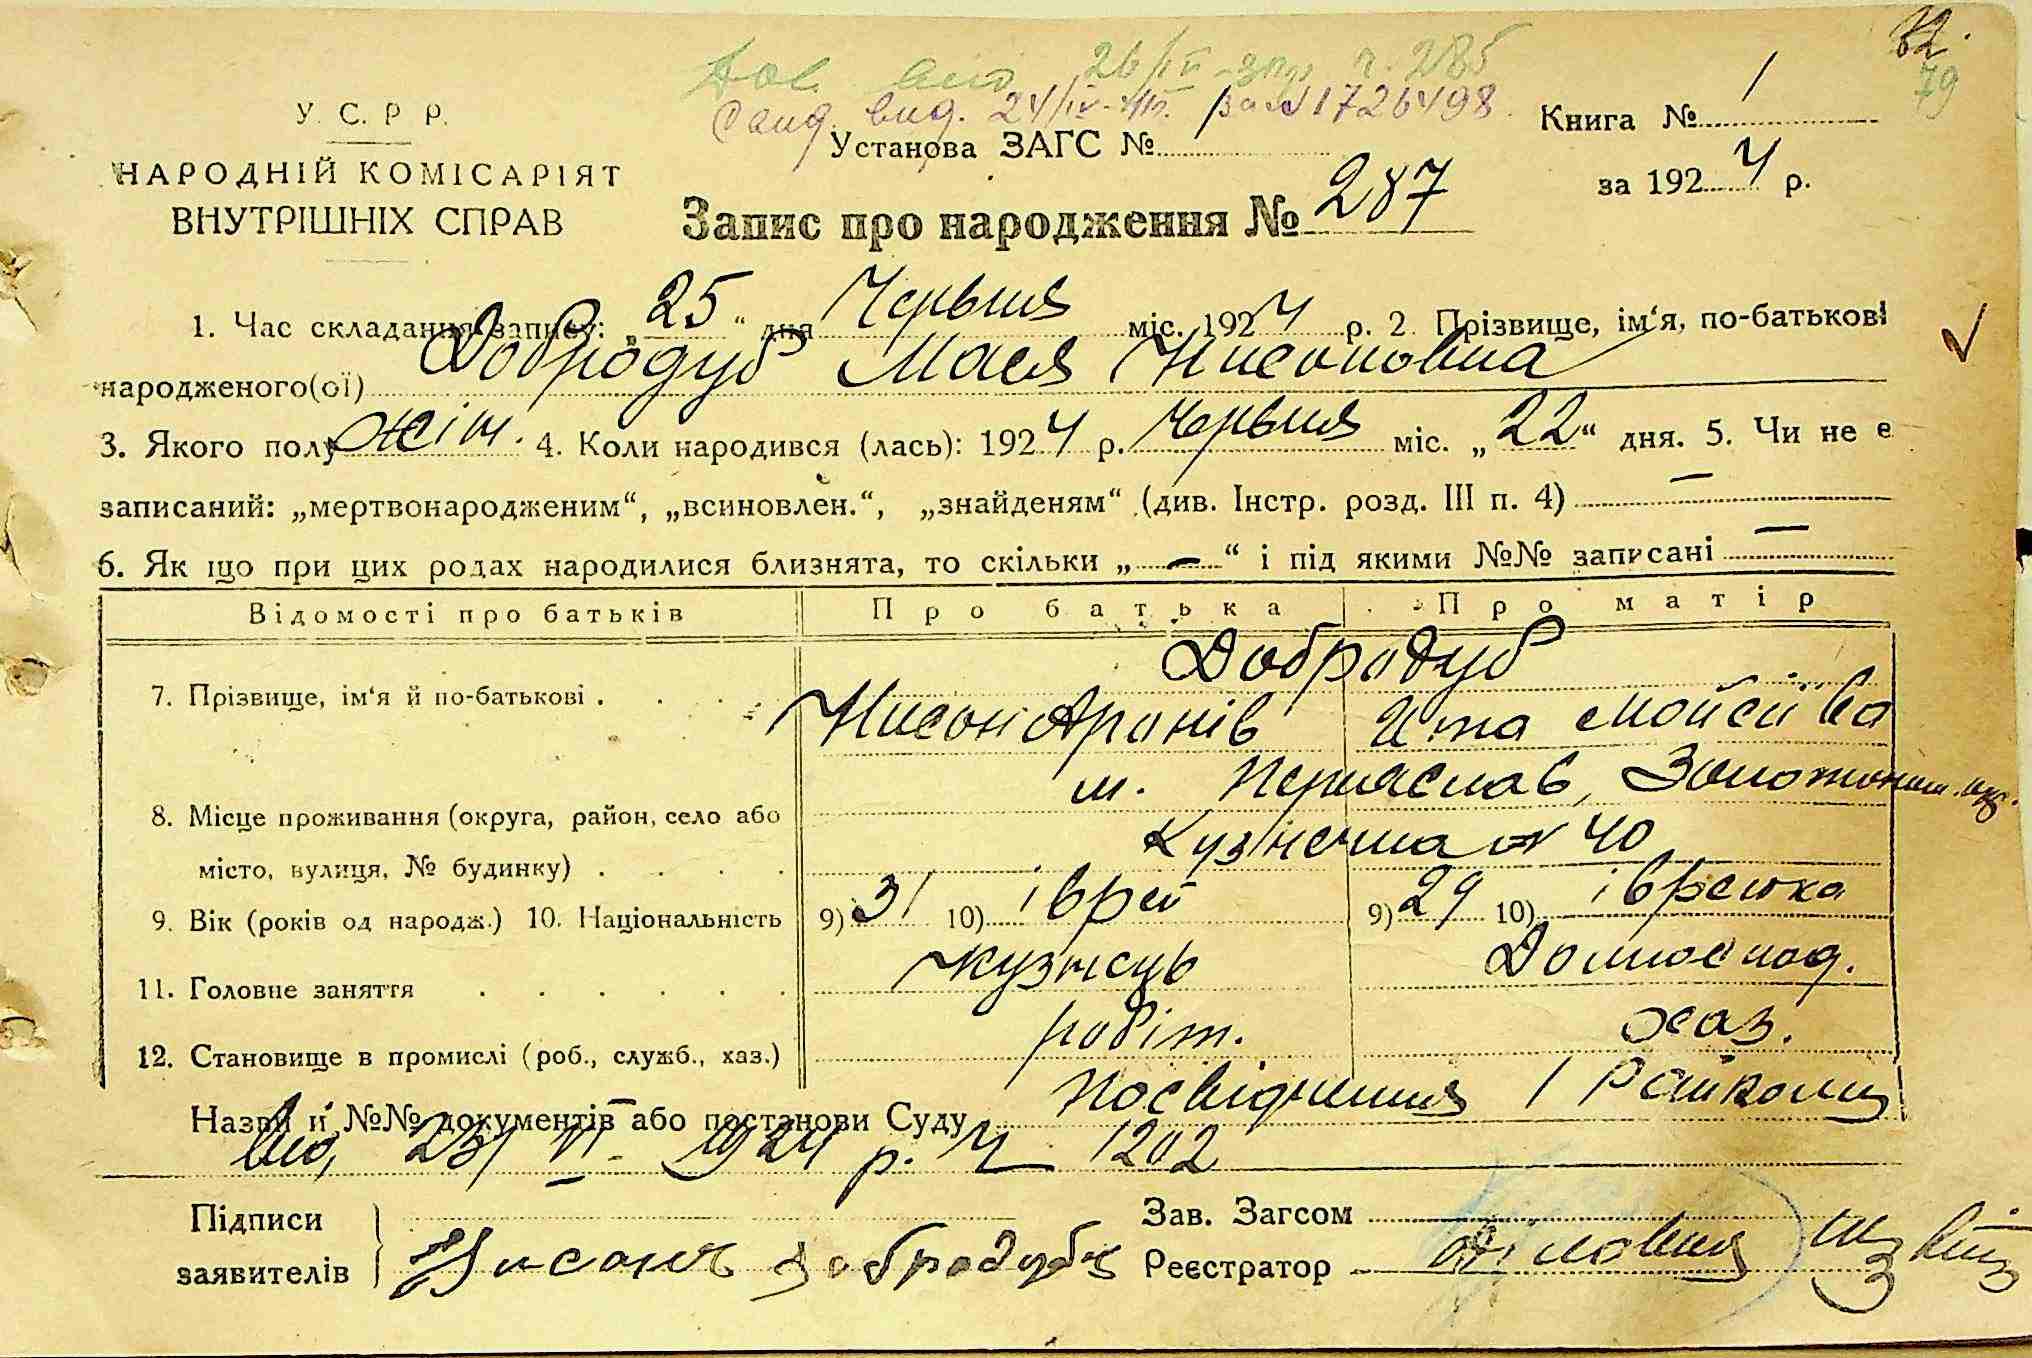 82.
79
26/IV ч. 285
вид. 24/IV за № 1726498
У. С. Р. Р.
Книга № 1
Установа ЗАГС №
НАРОДНІЙ КОМІСАРІЯТ
за 1924 р.
ВНУТРІШНІХ СПРАВ
Запис про народження № 287
1. Час складання запису: „25“ дня Червня міс. 1924 р. 2. Прізвище, ім‘я, по-батькові
народженого(ої) Добродуб Мася Нисоновна
3. Якого полу жін. 4. Коли народився (лась): 1924 р. Червня міс. „22“ дня. 5. Чи не є
записаний: „мертвонародженим“, „всиновлен.“, „знайденям“ (див. Інстр. розд. III п. 4) —
6. Як що при цих родах народилися близнята, то скільки „—“ і під якими №№ записані —
Відомості про батьків Про батька Про матір
Добродуб
7. Прізвище, ім‘я й по-батькові . . . . Нисон Аронів Ита Мойсіїва
м. Переяслав, Золотоніш. окр.
8. Місце проживання (округа, район, село або
Кузнечна № 40
місто, вулиця, № будинку) . . . .
9. Вік (років од народж.) 10. Національність 9) 31 10) іврей 9) 29 10) іврейка
11. Головне заняття . . . . . . Кузнець Домогоспод.
12. Становище в промислі (роб., служб., хаз.) робіт. хаз.
Назви й №№ документів або постанови Суду Посвідчення Райкому
від 23/VI 1924 р. Ч 1202
Підписи
заявителів
Нисонъ Добродубъ
Зав. Загсом
Реєстратор